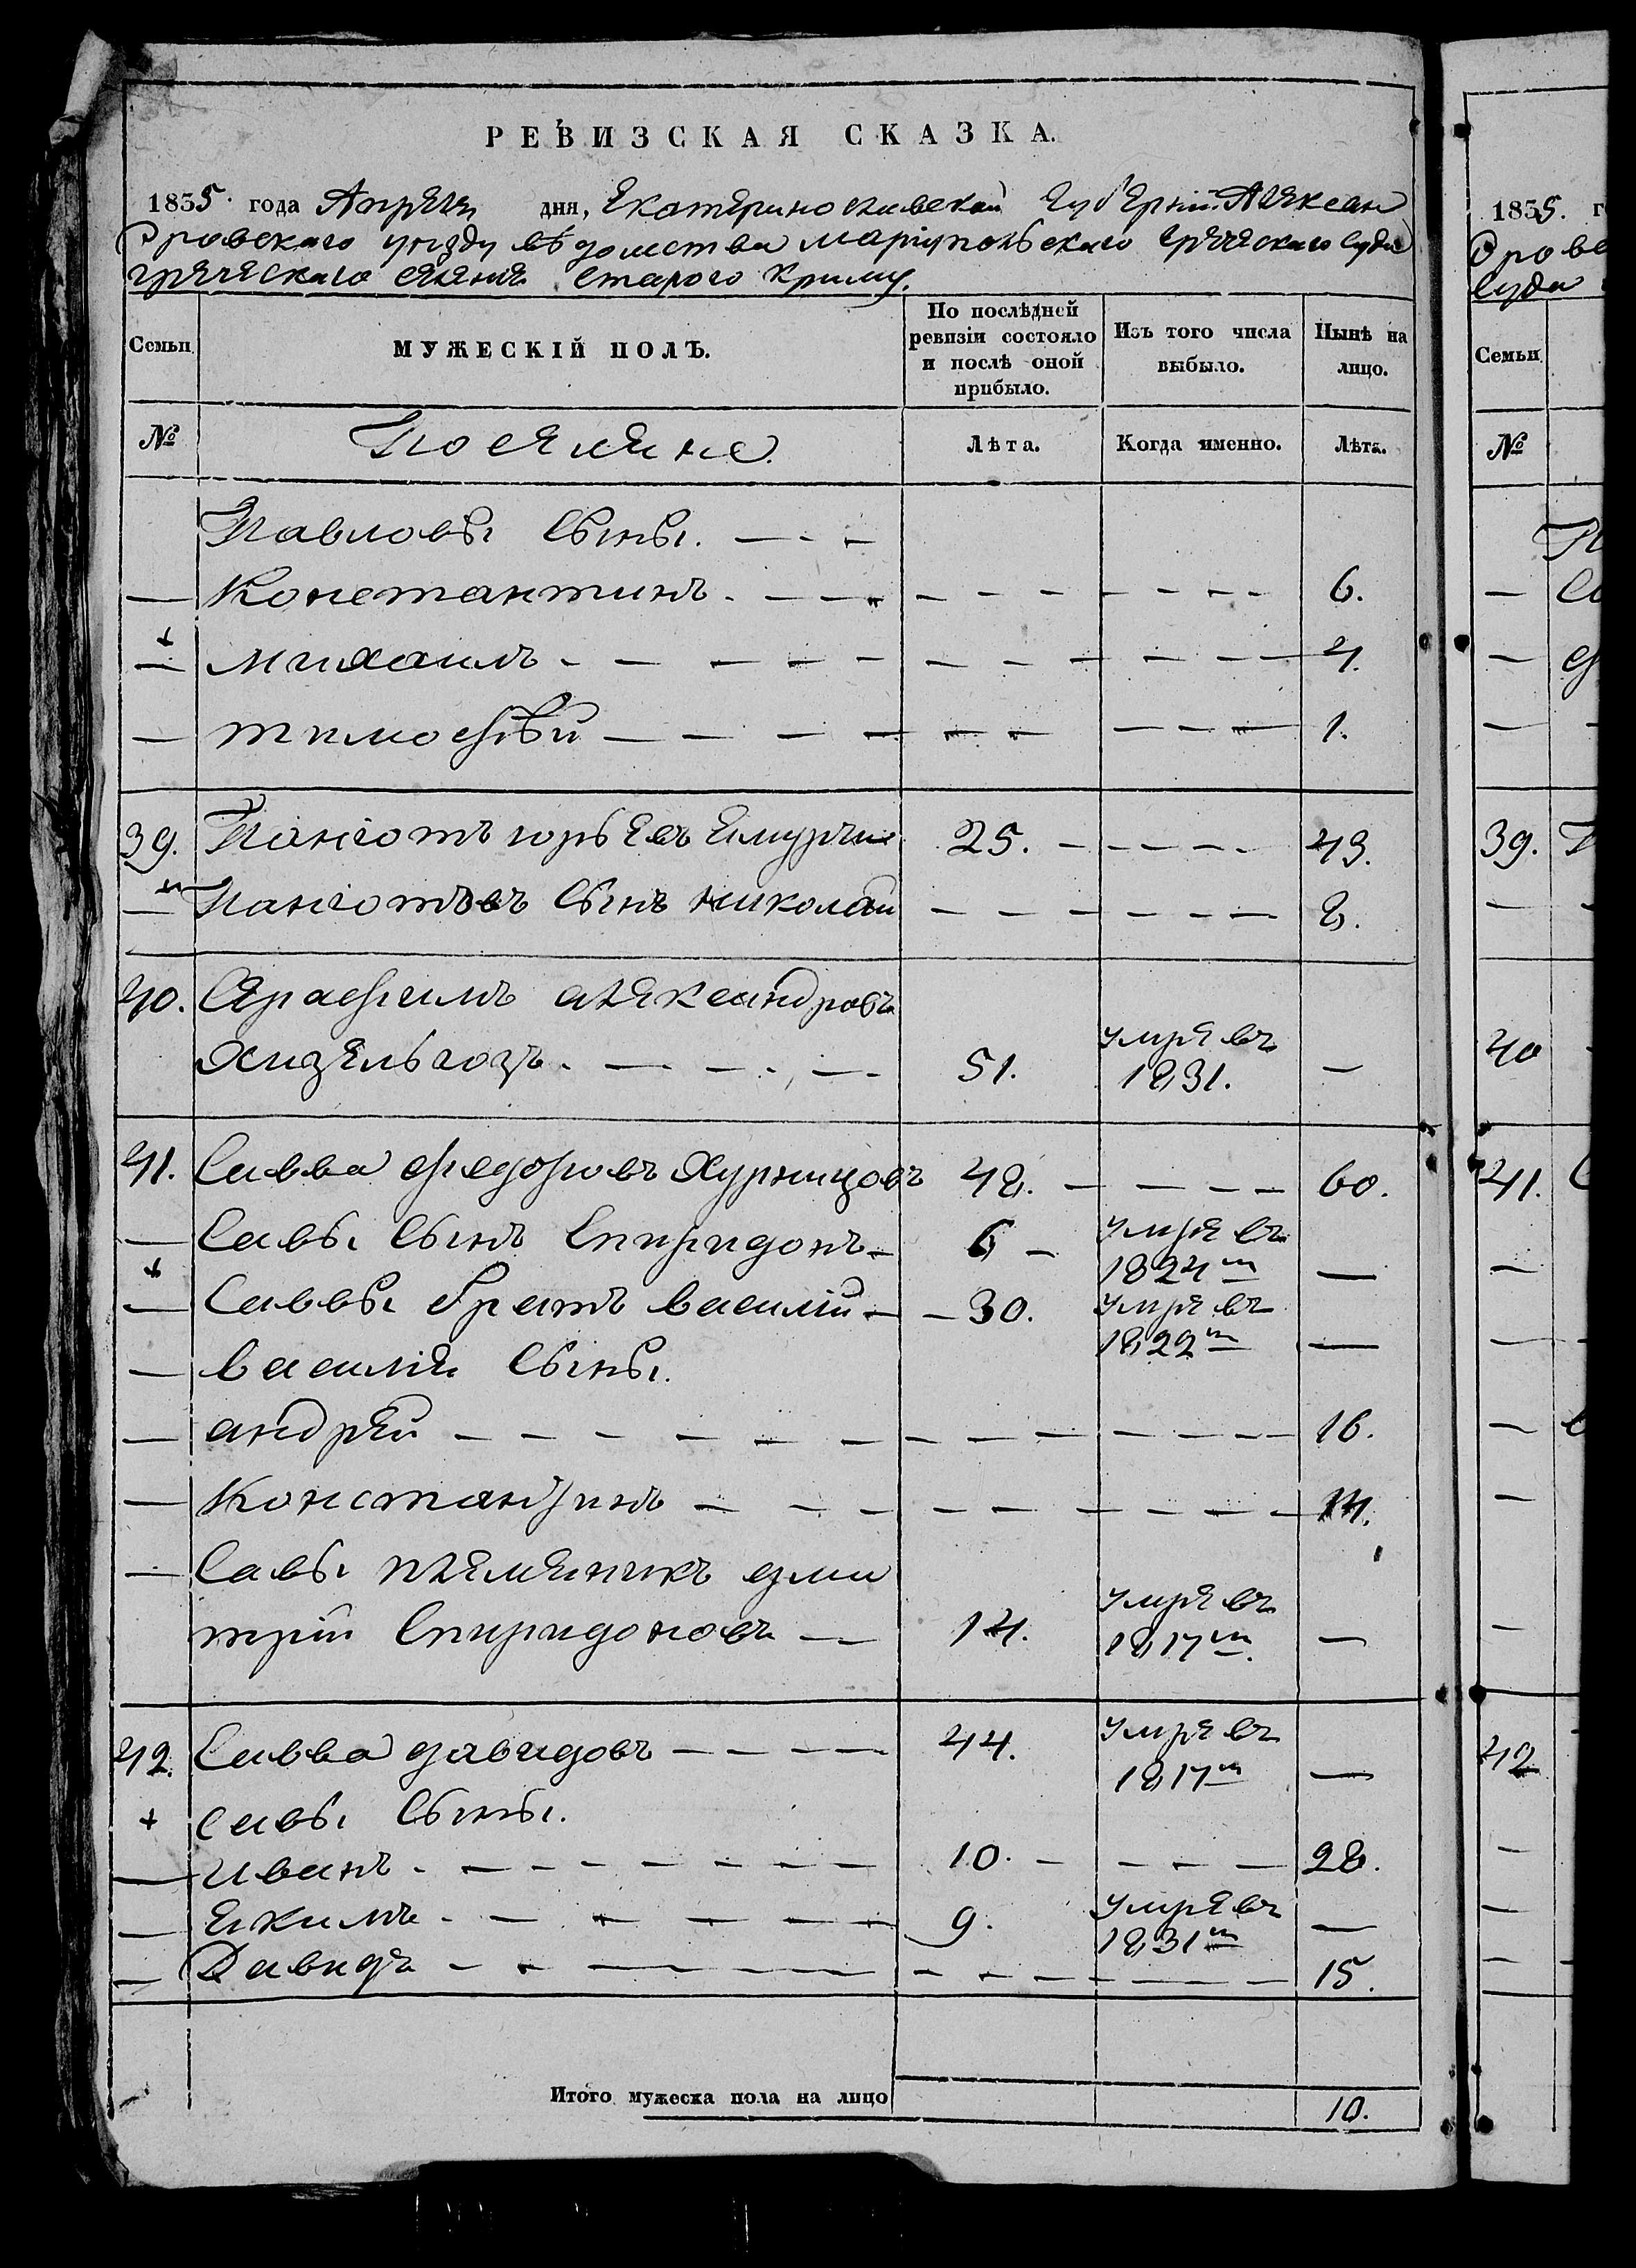 РЕВИЗСКАЯ СКАЗКА.
1835. года Апреля дня, Екатеринославской Губерніи Алексан
дровскаго уезду вѣдомства мариупольскаго греческаго суда
греческаго селения Старого Криму.
Семьи
МУЖЕСКІЙ ПОЛЪ.
По послѣдней ревизіи состояло и послѣ оной прибыло.
Изъ того числа выбыло.
Нынѣ на лицо.
№ Поселяне. Лѣта. Когда именно. Лѣта.
Павловы Сыны. — - —
— Константинъ. - — - - - - - - - - 6.
— михаилъ - - - - - - - - - - 4.
— тимофѣй - - - - - - - - - - 1.
39. Паніотъ юрьевъ 25. - - - - - 43.
— Паніотовъ Сынъ николай - - - - - - 8.
40. Серафимъ александровъ
Хизельгозъ. - - - - 51. умре въ 1831. —
41. Савва федоровъ Хурницовъ 42. - - - - 60.
— Савы Сынъ Спиридонъ - 6 - умре въ 1824м —
— Саввы братъ василій - - 30. умре въ 1822м —
— василия Сыны.
— андрей - - - - - - - - - - - 16.
— Константинъ - - - - - - - - - 14.
— Савы племяникъ дми
трій Спиридоновъ — 14. умре въ 1817м. —
42. Савва давидовъ - - - - 44. умре въ 1817м —
савы Сыны.
— иванъ. - - - - - - - 10. - - - - 28.
— екимъ. - - - - - - 9. умре въ 1831м —
— Давидъ - - - - - - - - - - - - 15.
Итого мужеска пола на лицо 10.
1835. г
дрове
Суда
Семьи
№
39.
40
41.
42